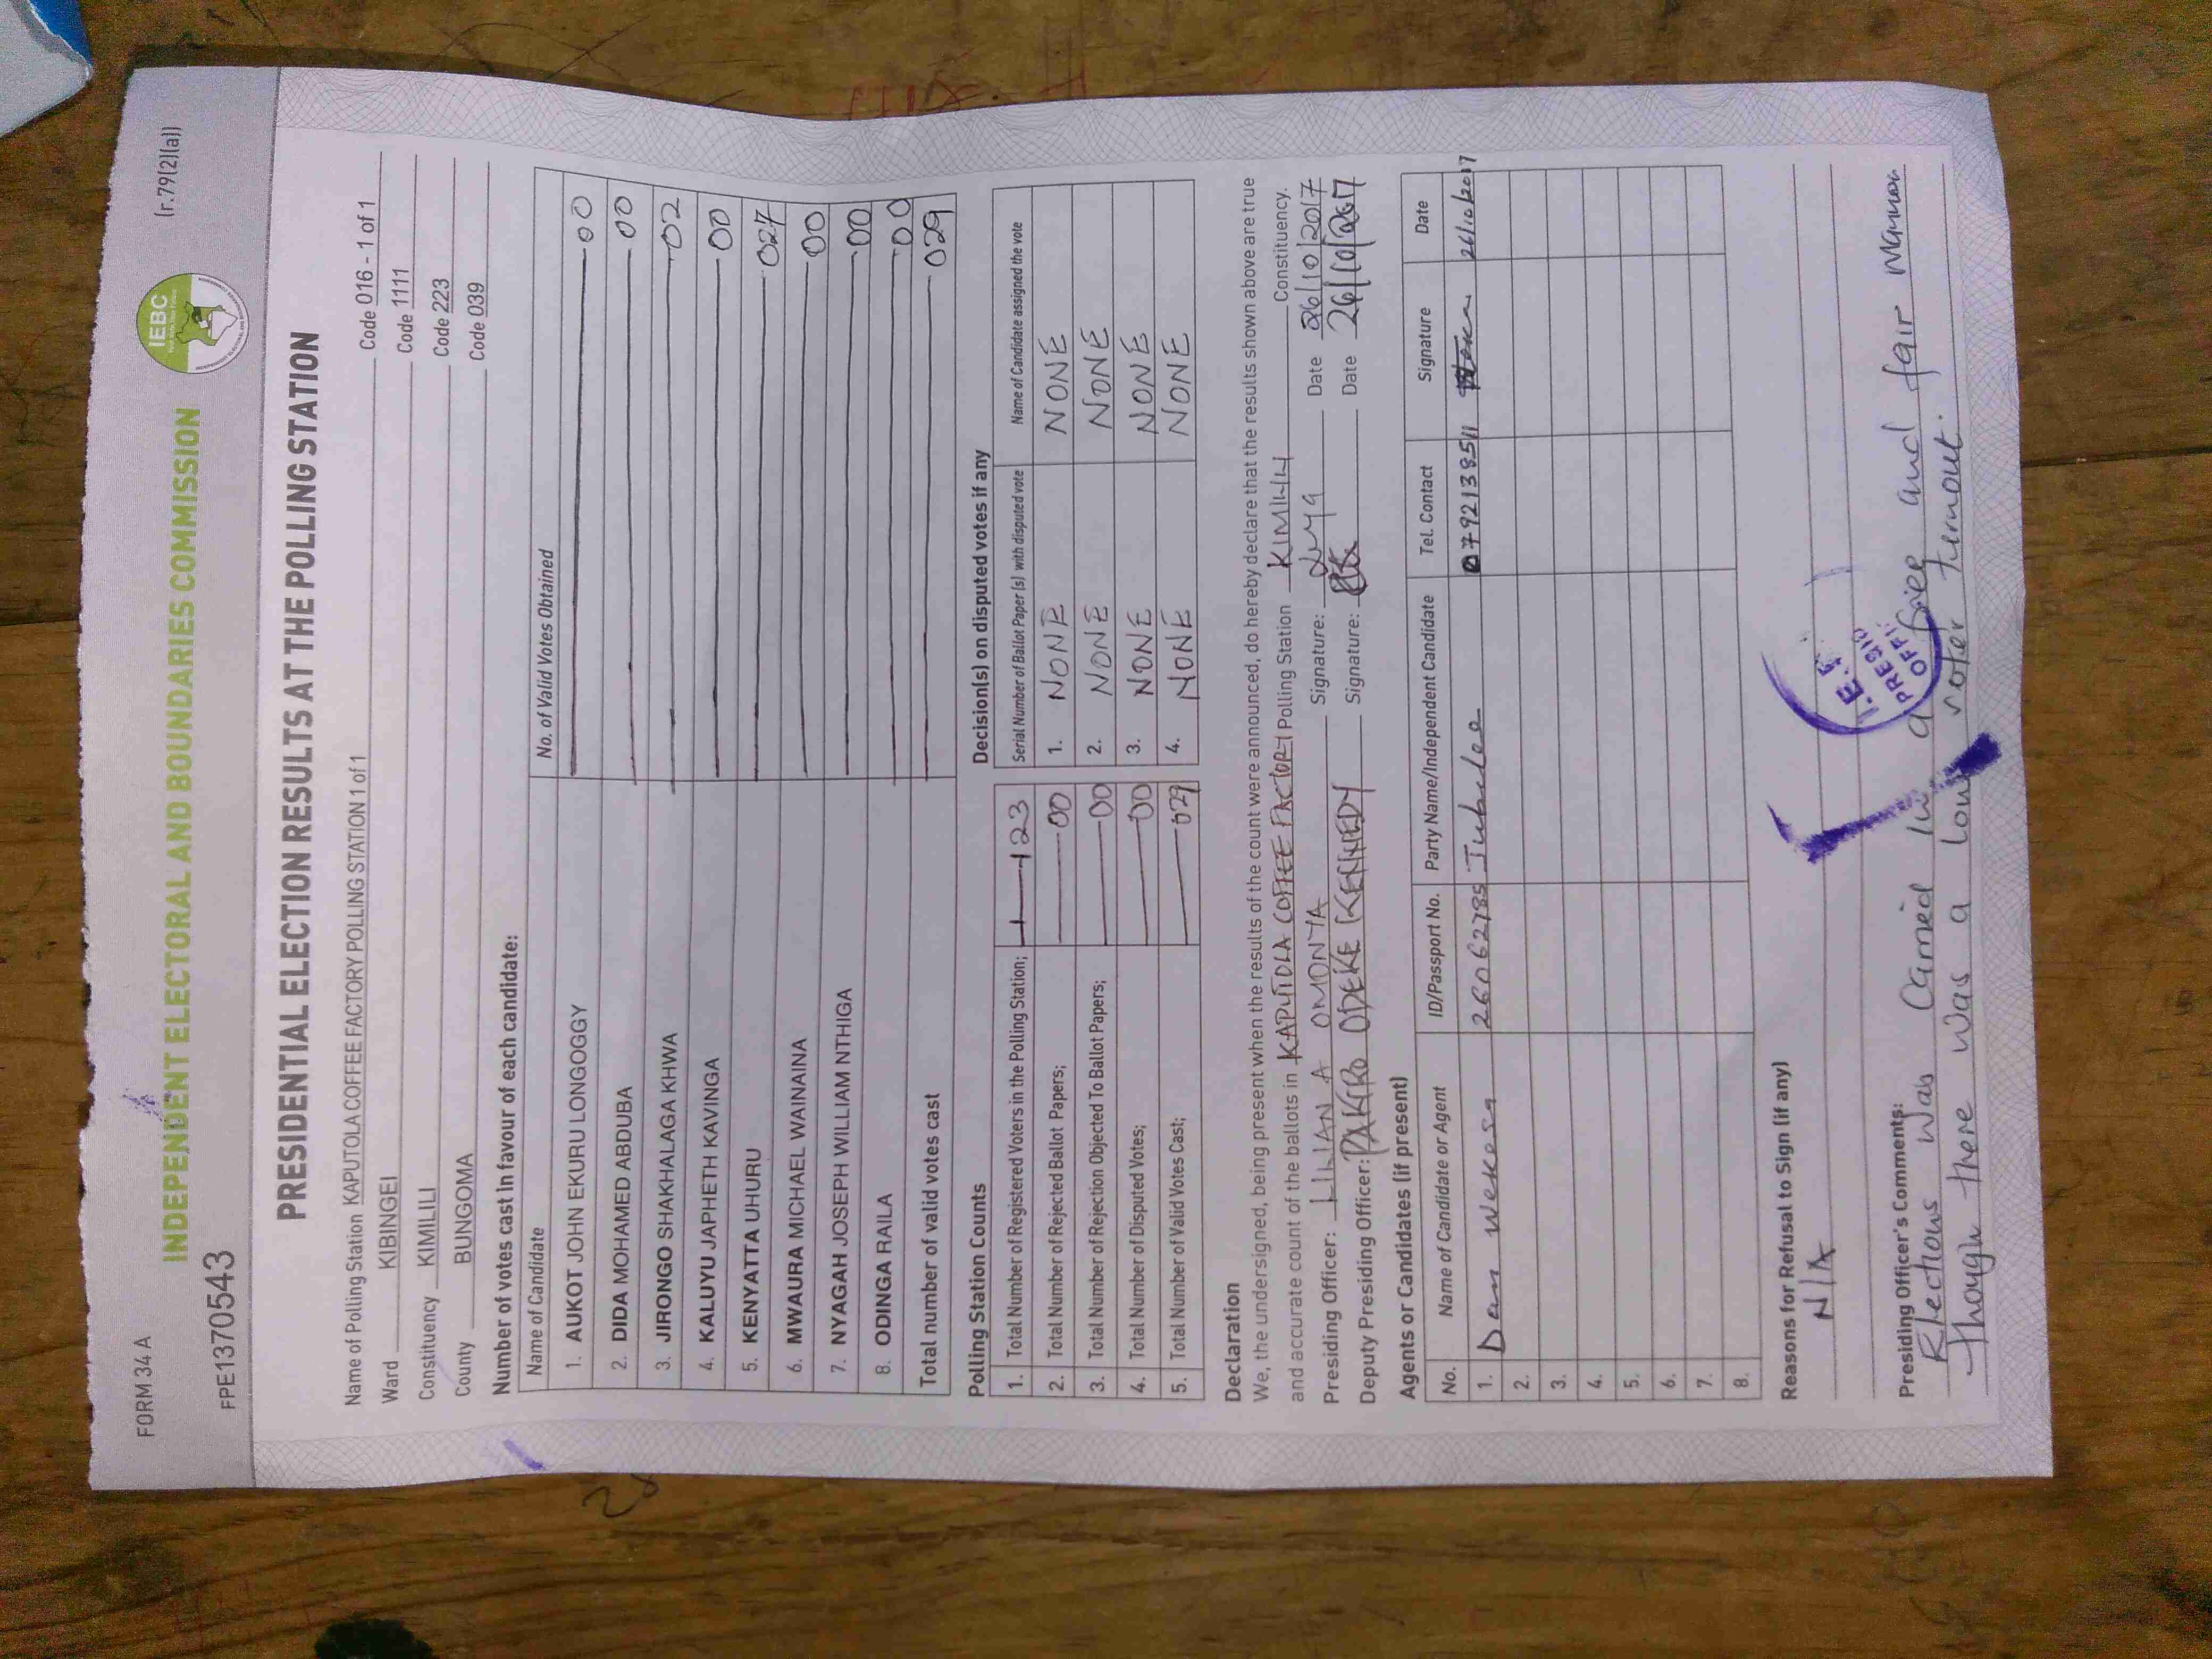 FORM 34 A
(r.79(2)(a))
IEBC
INDEPENDENT ELECTORAL AND BOUNDARIES COMMISSION
FPE1370543
PRESIDENTIAL ELECTION RESULTS AT THE POLLING STATION
Name of Polling Station KAPUTOLA COFFEE FACTORY POLLING STATION 1 of 1 Code 016 - 1 of 1
Ward KIBINGEI Code 1111
Constituency KIMILILI Code 223
County BUNGOMA Code 039
Number of votes cast in favour of each candidate:
Name of Candidate No. of Valid Votes Obtained
1. AUKOT JOHN EKURU LONGOGGY 00
2. DIDA MOHAMED ABDUBA 00
3. JIRONGO SHAKHALAGA KHWA 02
4. KALUYU JAPHETH KAVINGA 00
5. KENYATTA UHURU 027
6. MWAURA MICHAEL WAINAINA 00
7. NYAGAH JOSEPH WILLIAM NTHIGA 00
8. ODINGA RAILA 00
Total number of valid votes cast 029
Polling Station Counts
1. Total Number of Registered Voters in the Polling Station; 123
2. Total Number of Rejected Ballot Papers; 00
3. Total Number of Rejection Objected To Ballot Papers; 00
4. Total Number of Disputed Votes; 00
5. Total Number of Valid Votes Cast; 029
Decision(s) on disputed votes if any
Serial Number of Ballot Paper (s) with disputed vote Name of Candidate assigned the vote
1. NONE NONE
2. NONE NONE
3. NONE NONE
4. NONE NONE
Declaration
We, the undersigned, being present when the results of the count were announced, do hereby declare that the results shown above are true
and accurate count of the ballots in KAPUTOLA COFFEE FACTORY Polling Station KIMILILI Constituency.
Presiding Officer: LILIAN A OMONYA Signature: Date 26/10/2017
Deputy Presiding Officer: PAKIRO ODEKE KENNEDY Signature: Date 26/10/2017
Agents or Candidates (if present)
No. Name of Candidate or Agent ID/Passport No. Party Name/Independent Candidate Tel. Contact Signature Date
1. Dan Wekesa 26062785 Jubilee 0792138511 26/10/2017
2.
3.
4.
5.
6.
7.
8.
Reasons for Refusal to Sign (if any)
N/A
Presiding Officer's Comments:
Elections was carried in a free and fair manner
though there was a low voter turnout.